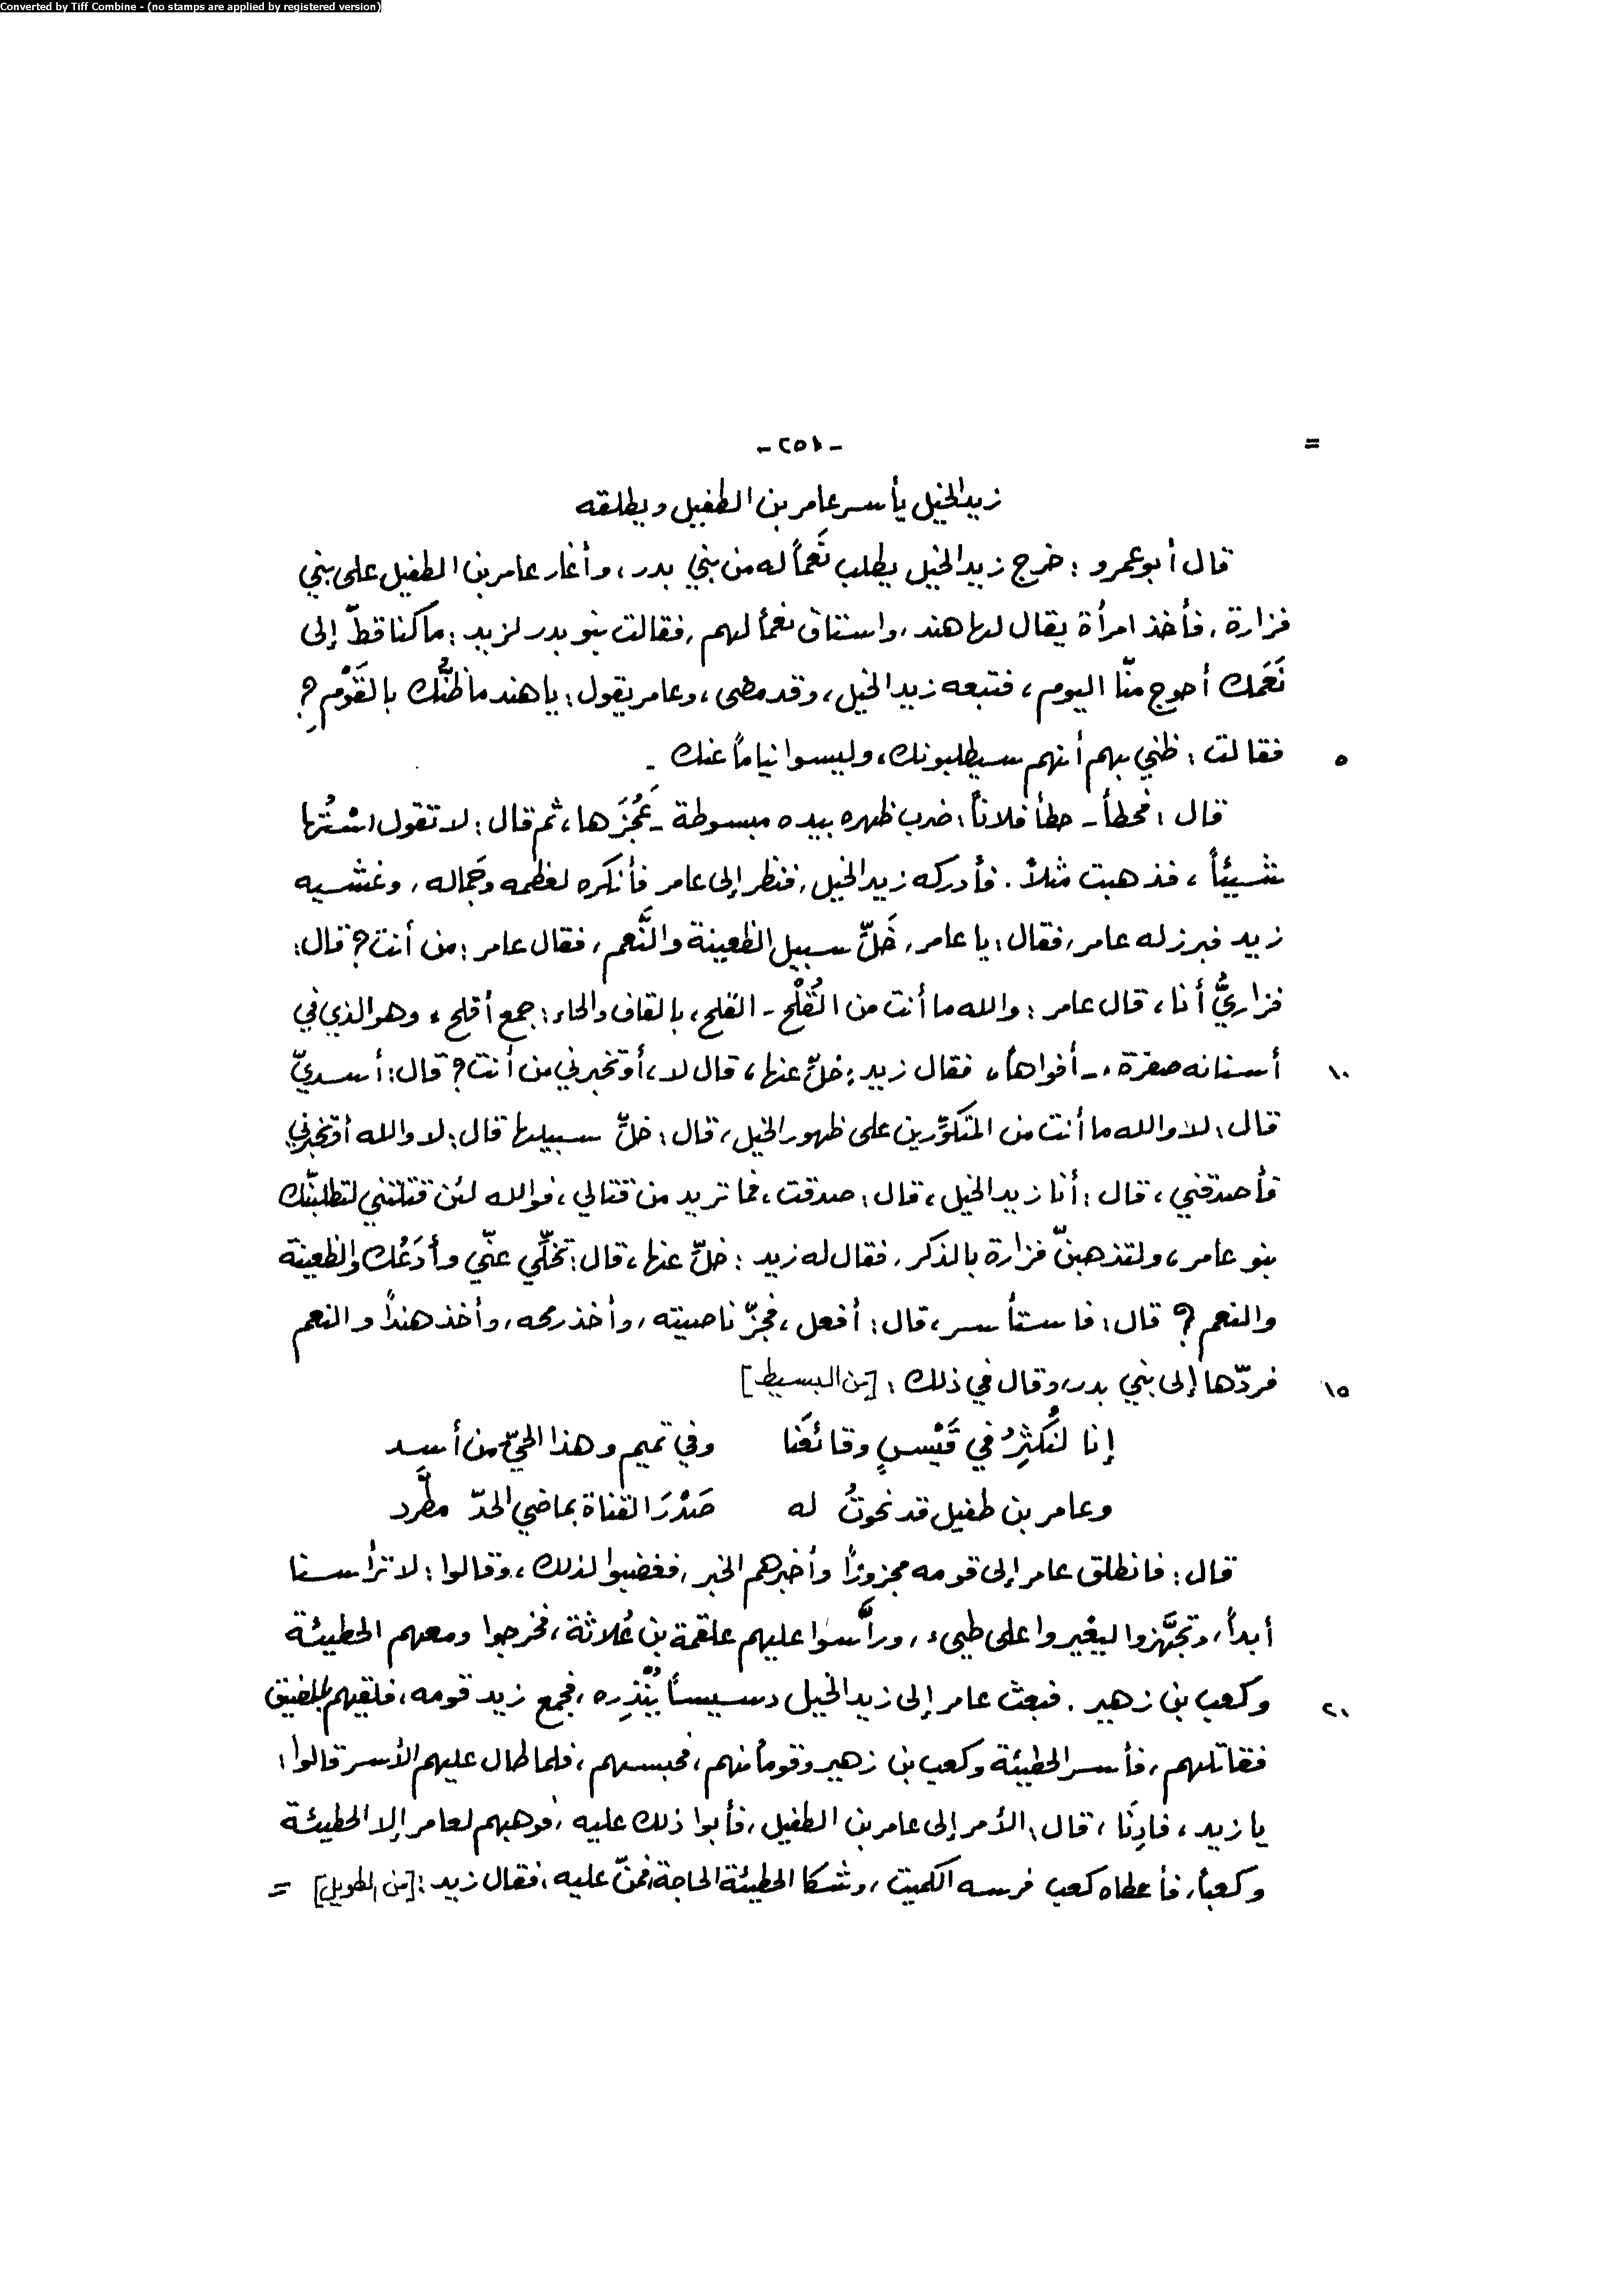 Converted by Tiff Combine - (no stamps are applied by registered version)
= -٢٥١-
زيد الخيل يأسر عامر بن الطفيل ويطلقه
قال أبو عمرو : خرج زيد الخيل يطلب نَعَماً له من بني بدر ، وأغار عامر بن الطفيل على بني
فزارة ، فأخذ امرأة يقال لها هند ، واستاق نعماً لهم ، فقالت بنو بدر لزيد : ما كنا قطّ إلى
نَعَمك أحوج منّا اليوم ، فتبعه زيد الخيل ، وقد مضى ، وعامر يقول : يا هند ما ظنُّك بالقَوْمِ ؟
٥ فقالت : ظني بهم أنهم سيطلبونك ، وليسوا نياماً عنك .
قال : فحطأ - حطأ فلاناً : ضرب ظهره بيده مبسوطة - عَجُزَها ، ثم قال : لا تقول اسْتُها
شيئاً ، فذهبت مثلاً . فأدركه زيد الخيل ، فنظر إلى عامر فأنكره لعظمه وجَماله ، وغشيه
زيد فبرز له عامر ، فقال : يا عامر ، خَلِّ سبيل الظعينة والنَّعم ، فقال عامر : من أنت ؟ قال :
فزاريٌّ أنا ، قال عامر : والله ما أنت من القُلْح - القلح ، بالقاف والحاء : جمع أقلح ، وهو الذي في
١٠ أسنانه صفرة ، - أفواهاً ، فقال زيد : خلِّ عنها ، قال لا ، أو تخبرني من أنت ؟ قال : أسديّ
قال : لا والله ما أنت من المتكوِّرين على ظهور الخيل ، قال : خلِّ سبيلها قال : لا والله أو تخبرني
فأصدقني ، قال : أنا زيد الخيل ، قال : صدقت ، فما تريد من قتالي ، فوالله لئن قتلتني لتطلبنّك
بنو عامر ، ولتذهبنّ فزارة بالذكر ، فقال له زيد : خلِّ عنها ، قال : تخلِّي عنّي وأدَعُك والظعينة
والنعم ؟ قال : فاستأسر ، قال : أفعل ، فجزّ ناصيته ، وأخذ رمحه ، وأخذ هنداً والنعم
١٥ فردّها إلى بني بدر ، وقال في ذلك : [من البسيط]
إنا لنُكْثِرُ في قَيْسٍ وقائعَنا وفي تميم وهذا الحيّ من أسد
وعامر بن طفيل قد نحوتُ له صَدْرَ القناة بماضي الحدّ مطَّرد
قال : فانطلق عامر إلى قومه مجزوزاً وأخبرهم الخبر ، فغضبوا لذلك ، وقالوا : لا ترأسنا
أبداً ، وتجهَّزوا ليغيروا على طيىء ، ورأَّسوا عليهم علقمة بن عُلاثة ، فخرجوا ومعهم الحطيئة
٢٠ وكعب بن زهير . فبعث عامر إلى زيد الخيل دسيساً يُنْذِره ، فجمع زيد قومه ، فلقيهم بالمضيق
فقاتلهم ، فأسر الحطيئة وكعب بن زهير وقوماً منهم ، فحبسهم ، فلما طال عليهم الأسر قالوا :
يا زيد ، فادِنَا ، قال : الأمر إلى عامر بن الطفيل ، فأبوا ذلك عليه ، فوهبهم لعامر إلا الحطيئة
وكعباً ، فأعطاه كعب فرسه الكميت ، وشكا الحطيئة الحاجة فمنّ عليه ، فقال زيد : [من الطويل] =